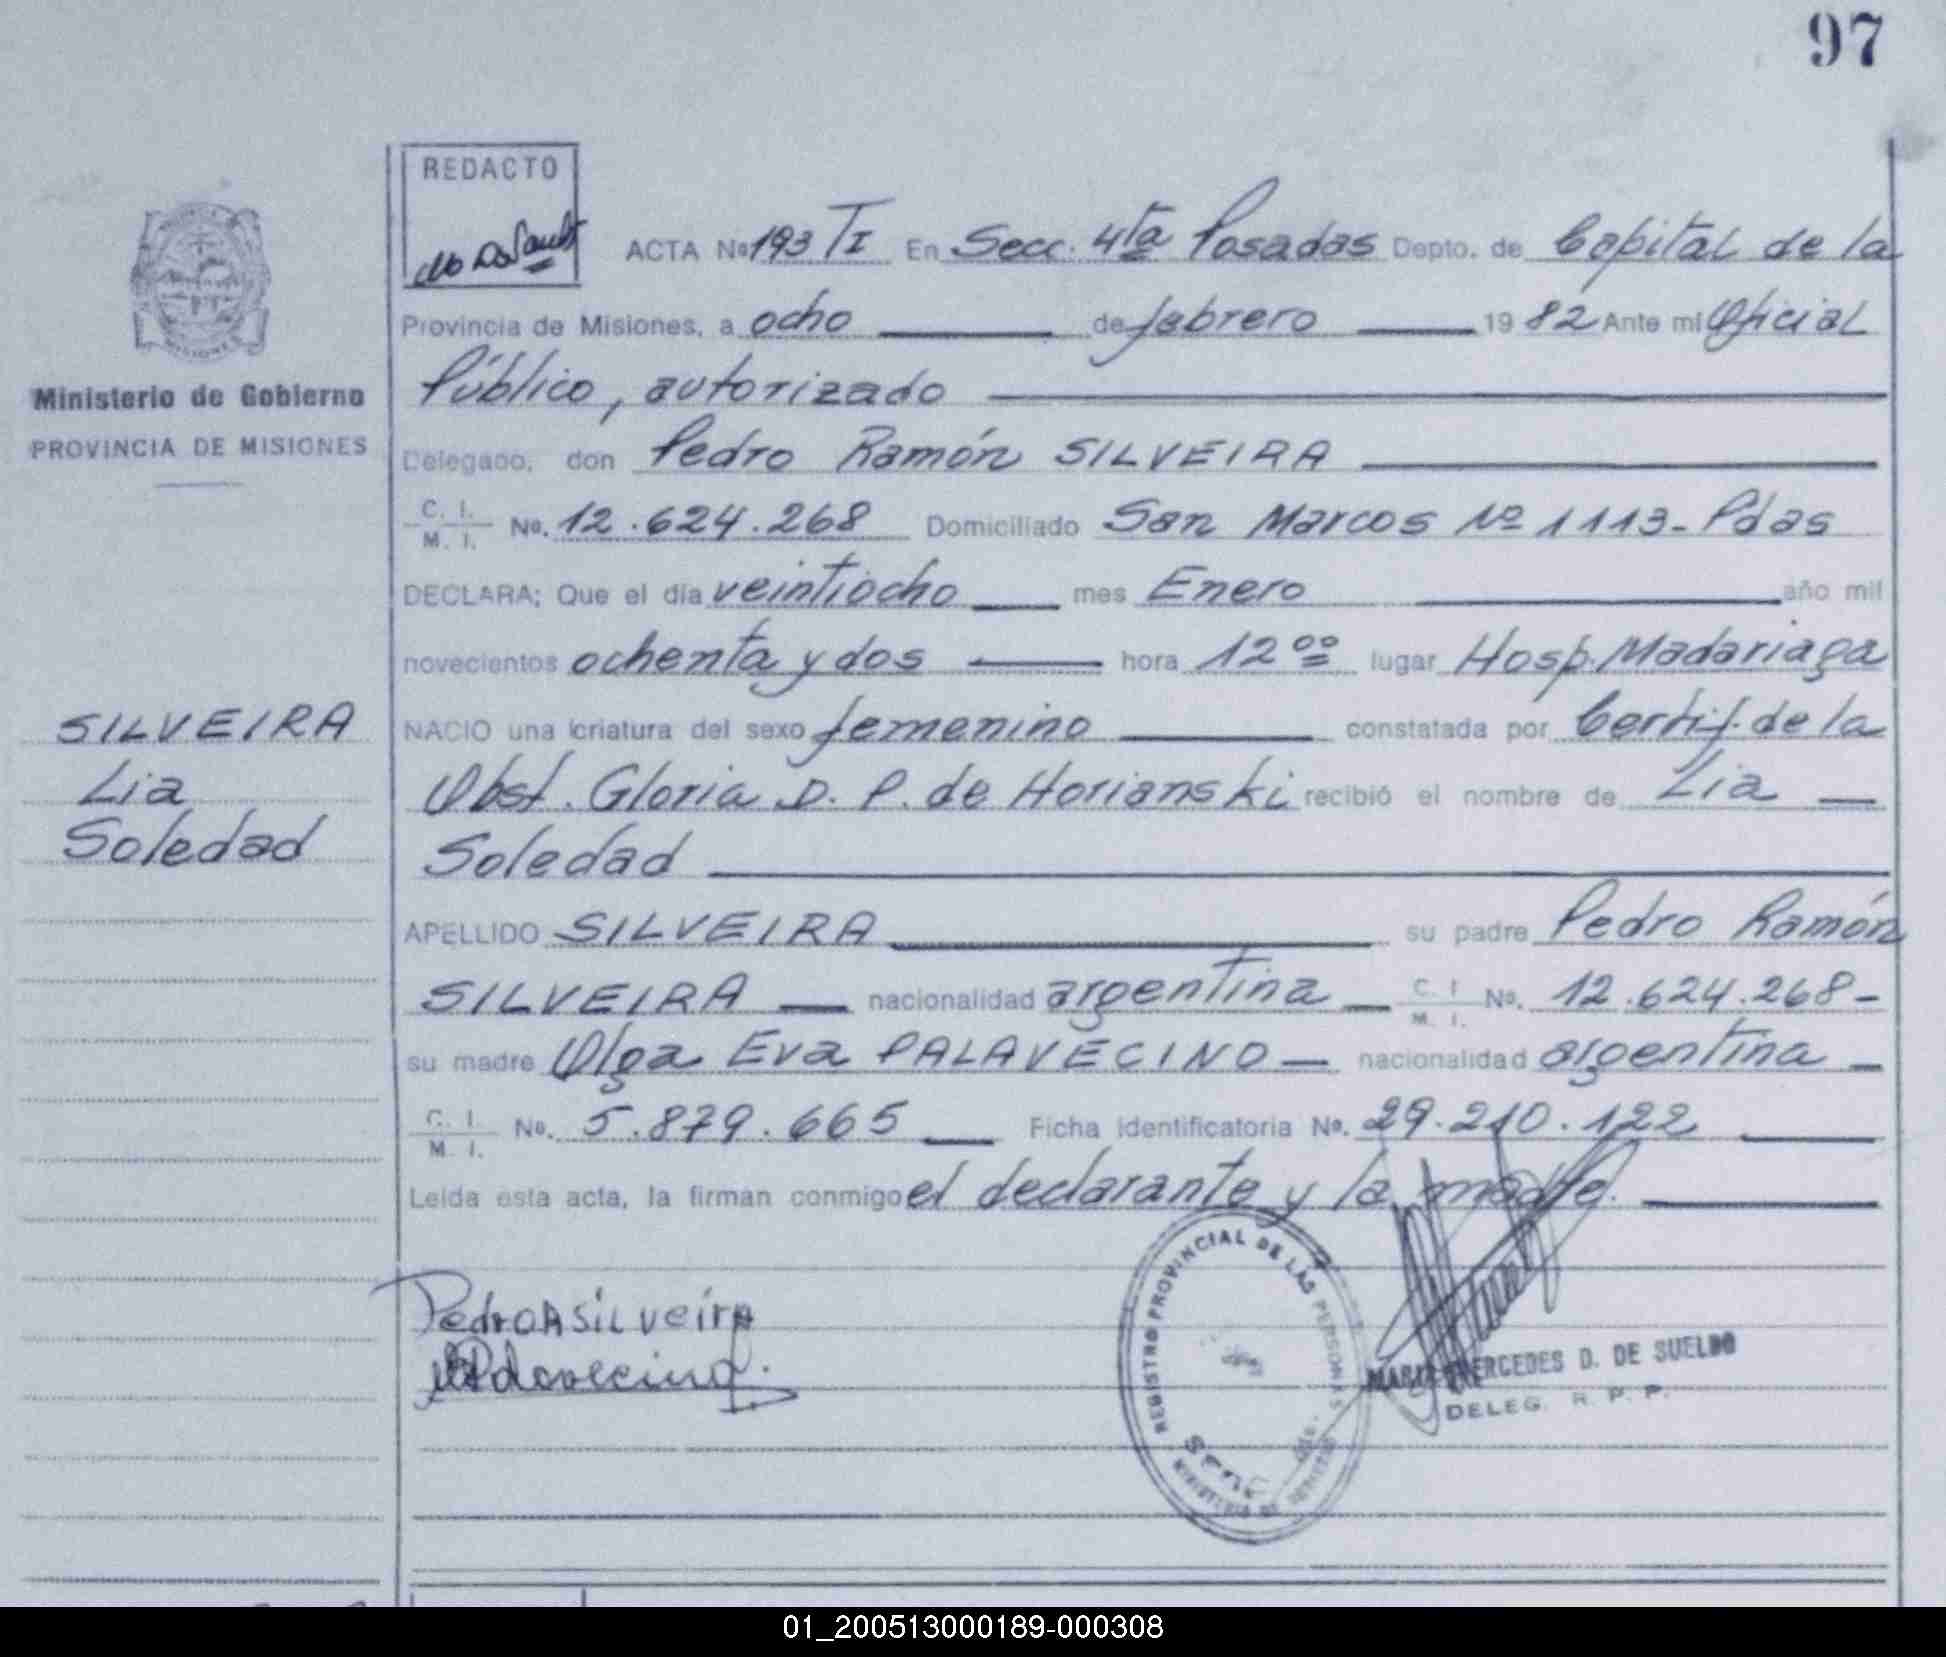 97
REDACTO
ACTA Nº 193 TI En Secc. 4ta Posadas Depto. de Capital de la
Provincia de Misiones, a ocho de febrero 19 82 Ante mi Oficial
Público, autorizado
Delegado, don Pedro Ramón SILVEIRA
C. I. M. I. No. 12.624.268 Domiciliado San Marcos Nº 1113- Pdas
DECLARA; Que el día veintiocho mes Enero año mil
novecientos ochenta y dos hora 12 ºº lugar Hosp. Madariaga
NACIO una criatura del sexo femenino constatada por Certif. de la
Obst. Gloria D. P. de Horianski recibió el nombre de Lia
Soledad
APELLIDO SILVEIRA su padre Pedro Ramón
SILVEIRA nacionalidad argentina C. I. M. I. No. 12.624.268-
su madre Olga Eva PALAVECINO nacionalidad argentina
C. I. M. I. No. 5.879.665 Ficha identificatoria No. 29.210.122
Leída esta acta, la firman conmigo el declarante y la madre.
MISIONES
Ministerio de Gobierno
PROVINCIA DE MISIONES
SILVEIRA
Lia
Soledad
Pedro A Silveira
Palavecino
REGISTRO PROVINCIAL DE LAS PERSONAS
MINISTERIO DE
MARIA MERCEDES D. DE SUELDO
DELEG. R. P. P.
01_200513000189-000308